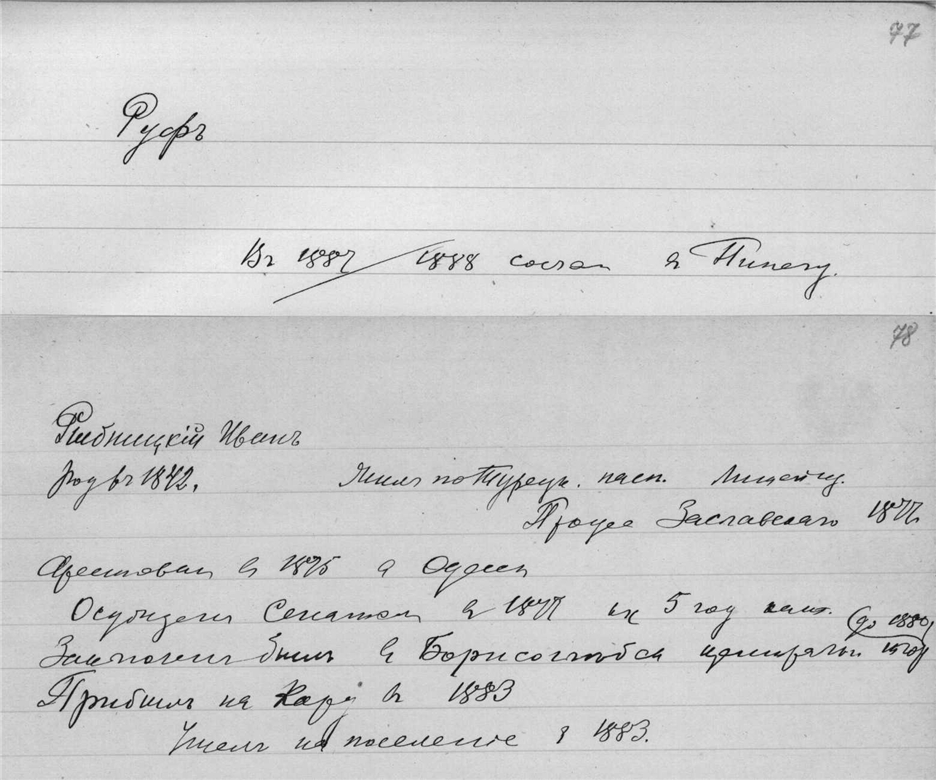 77
Руфъ
Въ 1887/1888 сослан в Пинегу.
78
Рыбницкій Иванъ
род въ 1842.
Жилъ по Турецк. пасп.
Процес Заславскаго 1877
Арестован в 1875 в Одессе
Осужден Сенатом в 1877 на 5 год кат.
(до 1880
Заключен былъ в Борисоглебск централ
Прибылъ на Кару в 1883
Ушелъ на поселение в 1883.